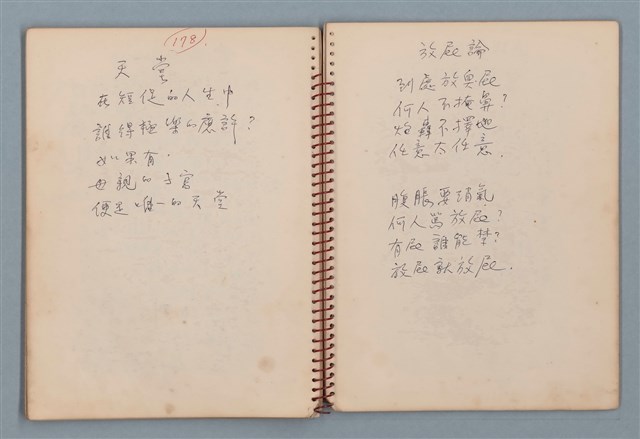 178.
天堂
在短促的人生中
誰得極樂的應許？
如果有．
母親的子宮
便是唯一的天堂
放屁論
到處放臭屁
何人不掩鼻？
炮轟不擇地
任意太任意．
腹脹要消氣
何人篤放屁？
有屁誰能禁？
放屁就放屁．